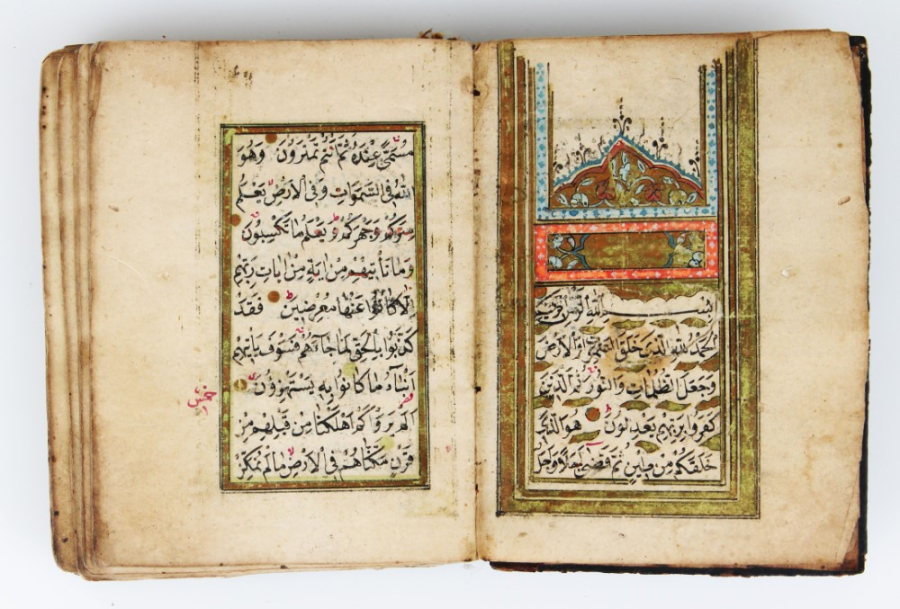 بسم الله الرحمن الرحيم
الحمد لله الذي خلق السموات والارض
وجعل الظلمات والنور ثم الذين
كفروا بربهم يعدلون هو الذي
خلقكم من طين ثم قضى اجلا واجل
مسمى عنده ثم انتم تمترون وهو
الله في السموات وفي الارض يعلم
سركم وجهركم ويعلم ما تكسبون
وما تأتيهم من اية من ايات ربهم
الا كانوا عنها معرضين فقد
كذبوا بالحق لما جاءهم فسوف يأتيهم
انباء ما كانوا به يستهزؤن
الم يروا كم اهلكنا من قبلهم من
قرن مكناهم في الارض ما لم نمكن
خمس